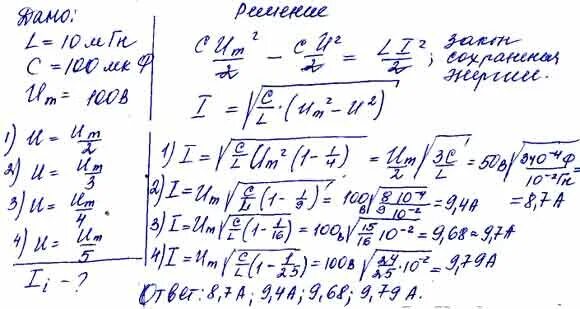 Дано:
L = 10 мГн
C = 100 мкФ
Um = 100 В
1) U = Um/2
2) U = Um/3
3) U = Um/4
4) U = Um/5
Ii - ?
Решение
CUm²/2 - CU²/2 = LI²/2; закон сохранения энергии.
I = √(C/L · (Um² - U²))
1) I = √(C/L Um² (1 - 1/4)) = Um/2 √(3C/L) = 50В √(3·10⁻⁴Ф/10⁻²Гн) =
= 8,7 А
2) I = Um √(C/L (1 - 1/9)) = 100В √(8·10⁻⁴/9·10⁻²) = 9,4А
3) I = Um √(C/L (1 - 1/16)) = 100В √(15/16 10⁻²) = 9,68 = 9,7А
4) I = Um √(C/L (1 - 1/25)) = 100В √(24/25 · 10⁻²) = 9,79А
Ответ: 8,7А; 9,4А; 9,68; 9,79А.